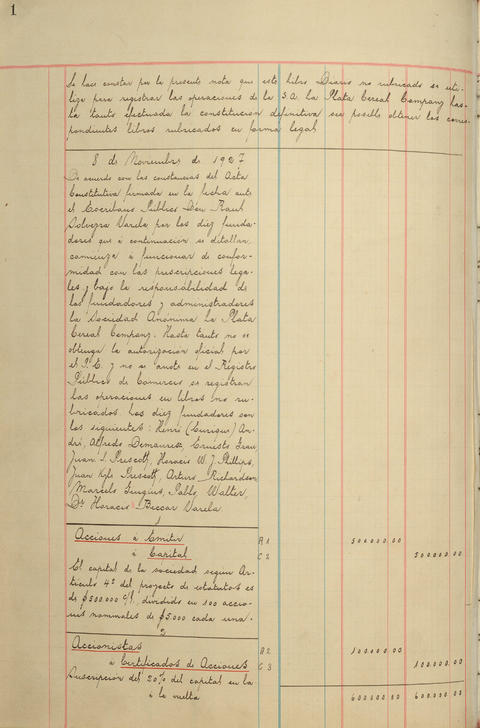 1
Se hace constar por la presente nota que este libro Diario no rubricado se uti-
liza para registrar las operaciones de la S.A. La Plata Cereal Company has-
ta tanto efectuada la constitución definitiva sea posible obtener los corres-
pondientes libros rubricados en forma legal
8 de Noviembre de 1927
De acuerdo con las constancias del Acta
Constitutiva firmada en la fecha ante
el Escribano Público Don Raul
Varela por los diez funda-
dores que á continuación se detallan,
comienza á funcionar de confor-
midad con las prescripciones lega-
les y bajo la responsabilidad de
los fundadores y administradores
la Sociedad Anónima La Plata
Cereal Company. Hasta tanto no se
obtenga la autorización oficial por
el P.E. y no se anote en el Registro
Público de Comercio se registran
las operaciones en libros no ru-
bricados. Los diez fundadores son
los siguientes: Henri (Enrique) An-
dré, Alfredo Demaurex, Ernesto
Juan L. Prescott, Horacio W. J. Phillips,
Juan Kyle Prescott, Arturo Richardson,
Marcelo Pablo Walter,
Dr. Horacio Beccar Varela.
1
Acciones á Emitir A 1 500000.00
á Capital C 2 500000.00
El capital de la sociedad según Ar-
tículo 4º del proyecto de estatutos es
de $500.000 c/l. dividido en 100 accio-
nes nominales de $5.000 cada una.
2
Accionistas A 2 100000.00
á Certificados de Acciones C 3 100000.00
Suscripción del 20% del capital en la
á la vuelta 600000.00 600000.00